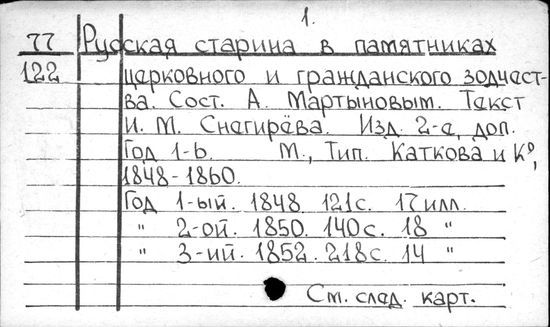 1.
77 Русская старина в памятниках
122 церковного и гражданского зодчест-
ва. Сост. А. Мартыновым. Текст
И. М. Снегирёва. Изд. 2-е, доп.
Год 1-6. М., Тип. Каткова и К°,
1848-1860.
Год 1-ый. 1848. 121с. 17илл.
" 2-ой. 1850. 140с. 18 "
" 3-ий. 1852. 218с. 14 "
См. след. карт.